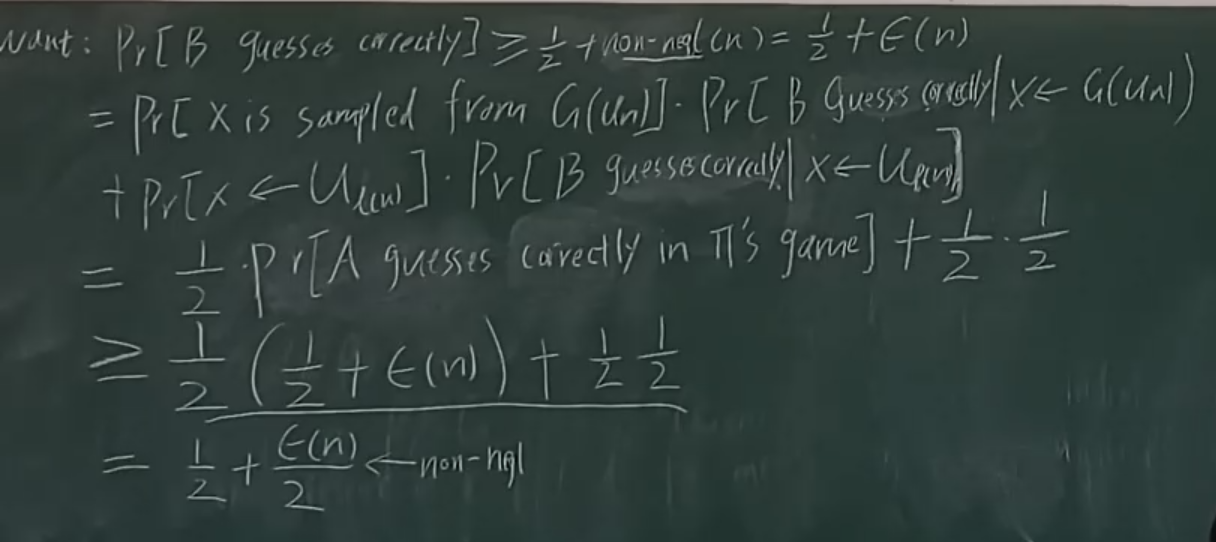 Want: Pr[B guesses correctly] ≥ 1/2 + non-negl(n) = 1/2 + ϵ(n)
= Pr[X is sampled from G(Un)]. Pr[B Guesses correctly | X ← G(Un))
+ Pr[X ← Uℓ(n)]. Pr[B guesses correctly | X ← Uℓ(n)]
= 1/2 · Pr[A guesses correctly in Π's game] + 1/2 · 1/2
≥ 1/2 (1/2 + ϵ(n)) + 1/2 1/2
= 1/2 + ϵ(n)/2 ← non-ngl